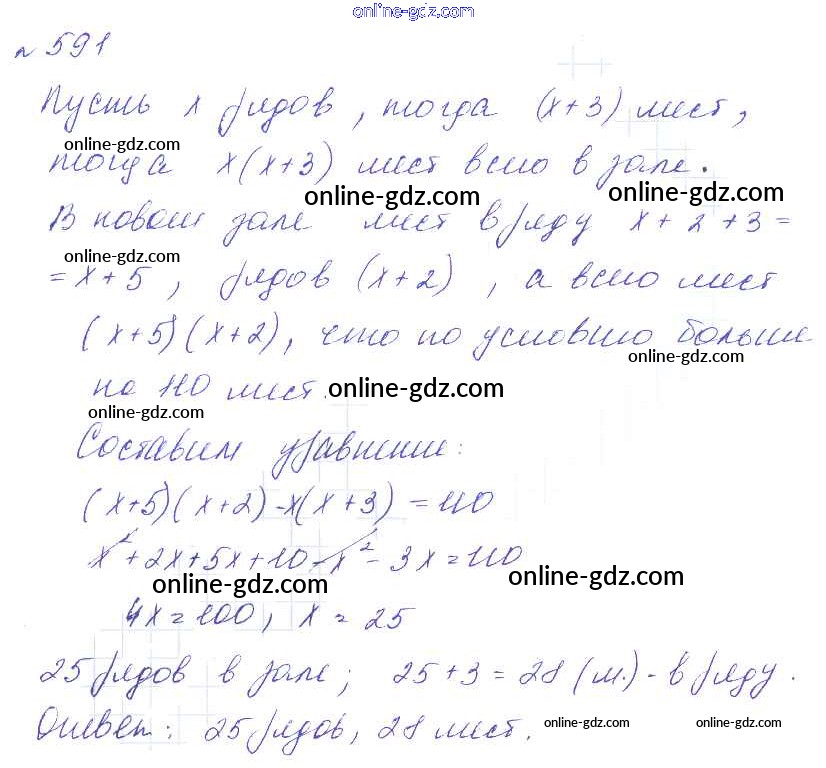 online-gdz.com
№ 591
Пусть x рядов, тогда (x+3) мест,
online-gdz.com
тогда x(x+3) мест всего в зале.
online-gdz.com online-gdz.com
В новом зале мест в ряду x+2+3=
online-gdz.com
=x+5, рядов (x+2), а всего мест
(x+5)(x+2), что по условию больше
online-gdz.com
на 110 мест.
online-gdz.com
online-gdz.com
Составим уравнение:
(x+5)(x+2)-x(x+3)=110
x²+2x+5x+10-x²-3x=110
online-gdz.com online-gdz.com
4x=100, x=25
25 рядов в зале; 25+3=28 (м.)-в ряду.
Ответ: 25 рядов, 28 мест.
online-gdz.com online-gdz.com